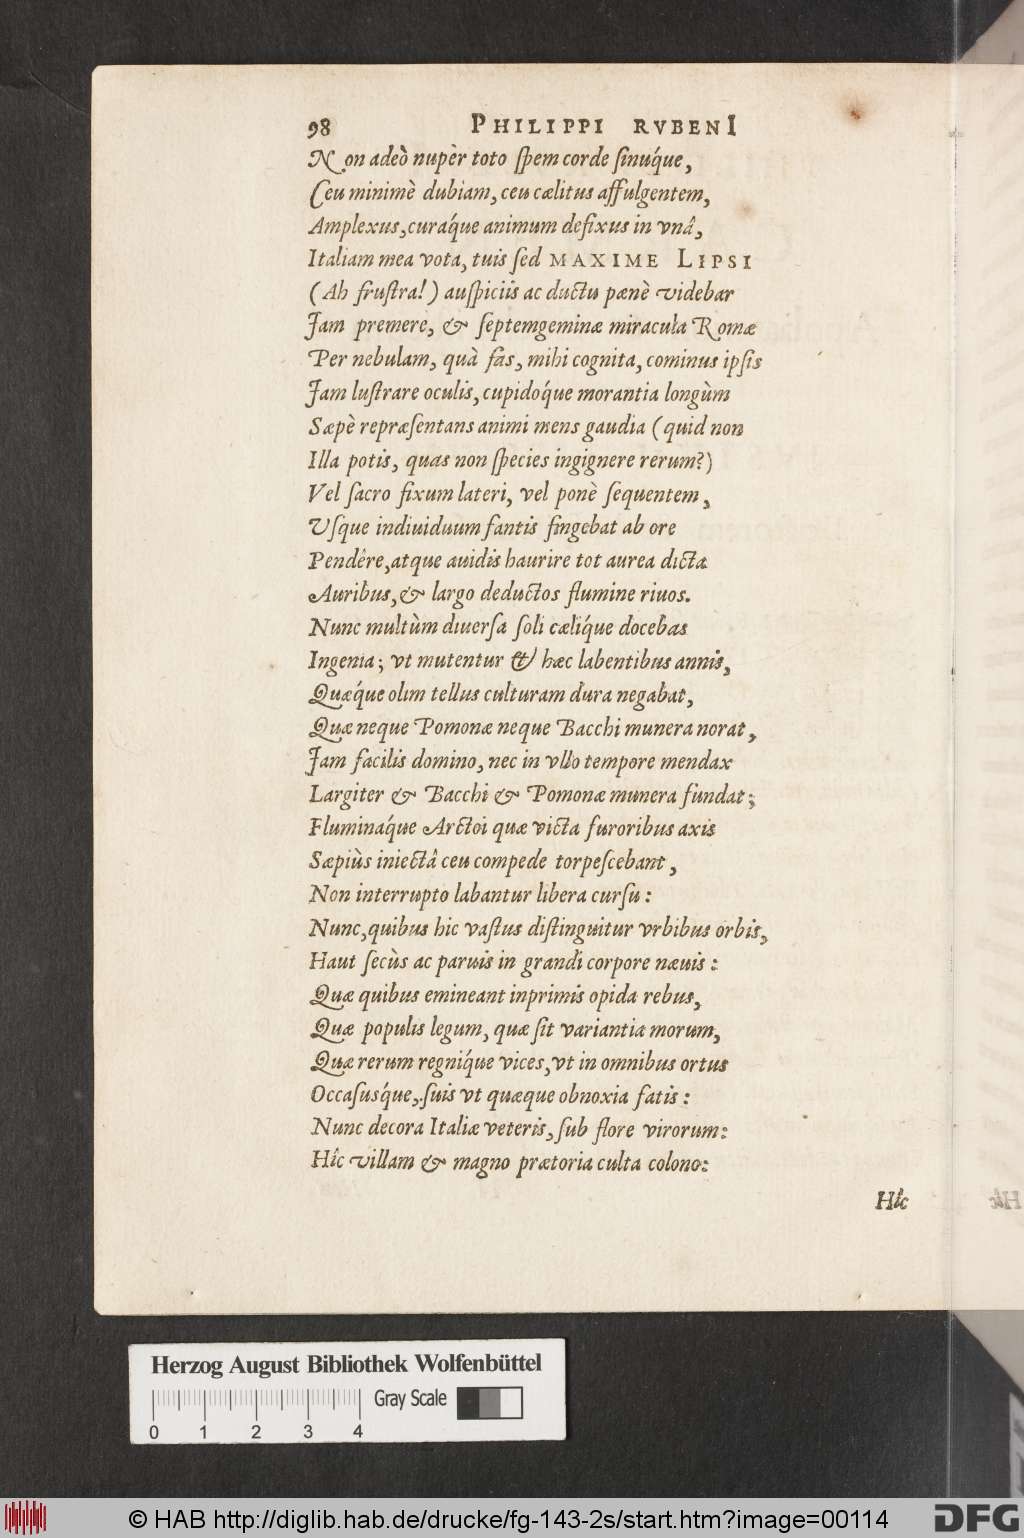 98 PHILIPPI RVBENI
Non adeò nupèr toto ſpem corde ſinuq́ue,
Ceu minimè dubiam, ceu cælitus affulgentem,
Amplexus, curaq́ue animum defixus in vnâ,
Italiam mea vota, tuis ſed MAXIME LIPSI
(Ah fruſtra!) auſpiciis ac ductu pænè videbar
Jam premere, & ſeptemgeminæ miracula Romæ
Per nebulam, quà fas, mihi cognita, cominus ipſis
Jam luſtrare oculis, cupidoq́ue morantia longùm
Sæpè repræſentans animi mens gaudia (quid non
Illa potis, quas non ſpecies ingignere rerum?)
Vel ſacro fixum lateri, vel ponè ſequentem,
Vſque indiuiduum fantis fingebat ab ore
Pendêre, atque auidis haurire tot aurea dicta
Auribus, & largo deductos flumine riuos.
Nunc multùm diuerſa ſoli cæliq́ue docebas
Ingenia; vt mutentur & hæc labentibus annis,
Quæq́ue olim tellus culturam dura negabat,
Quæ neque Pomonæ neque Bacchi munera norat,
Jam facilis domino, nec in vllo tempore mendax
Largiter & Bacchi & Pomonæ munera fundat;
Fluminaq́ue Arctoi quæ victa furoribus axis
Sæpiùs iniectâ ceu compede torpeſcebant,
Non interrupto labantur libera curſu:
Nunc, quibus hic vaſtus diſtinguitur vrbibus orbis,
Haut ſecùs ac paruis in grandi corpore næuis:
Quæ quibus emineant inprimis opida rebus,
Quæ populis legum, quæ ſit variantia morum,
Quæ rerum regniq́ue vices, vt in omnibus ortus
Occaſusq́ue, ſuis vt quæque obnoxia fatis:
Nunc decora Italiæ veteris, ſub flore virorum:
Hîc villam & magno prætoria culta colono:
Hîc
Herzog August Bibliothek Wolfenbüttel
0 1 2 3 4 Gray Scale
© HAB http://diglib.hab.de/drucke/fg-143-2s/start.htm?image=00114
DFG